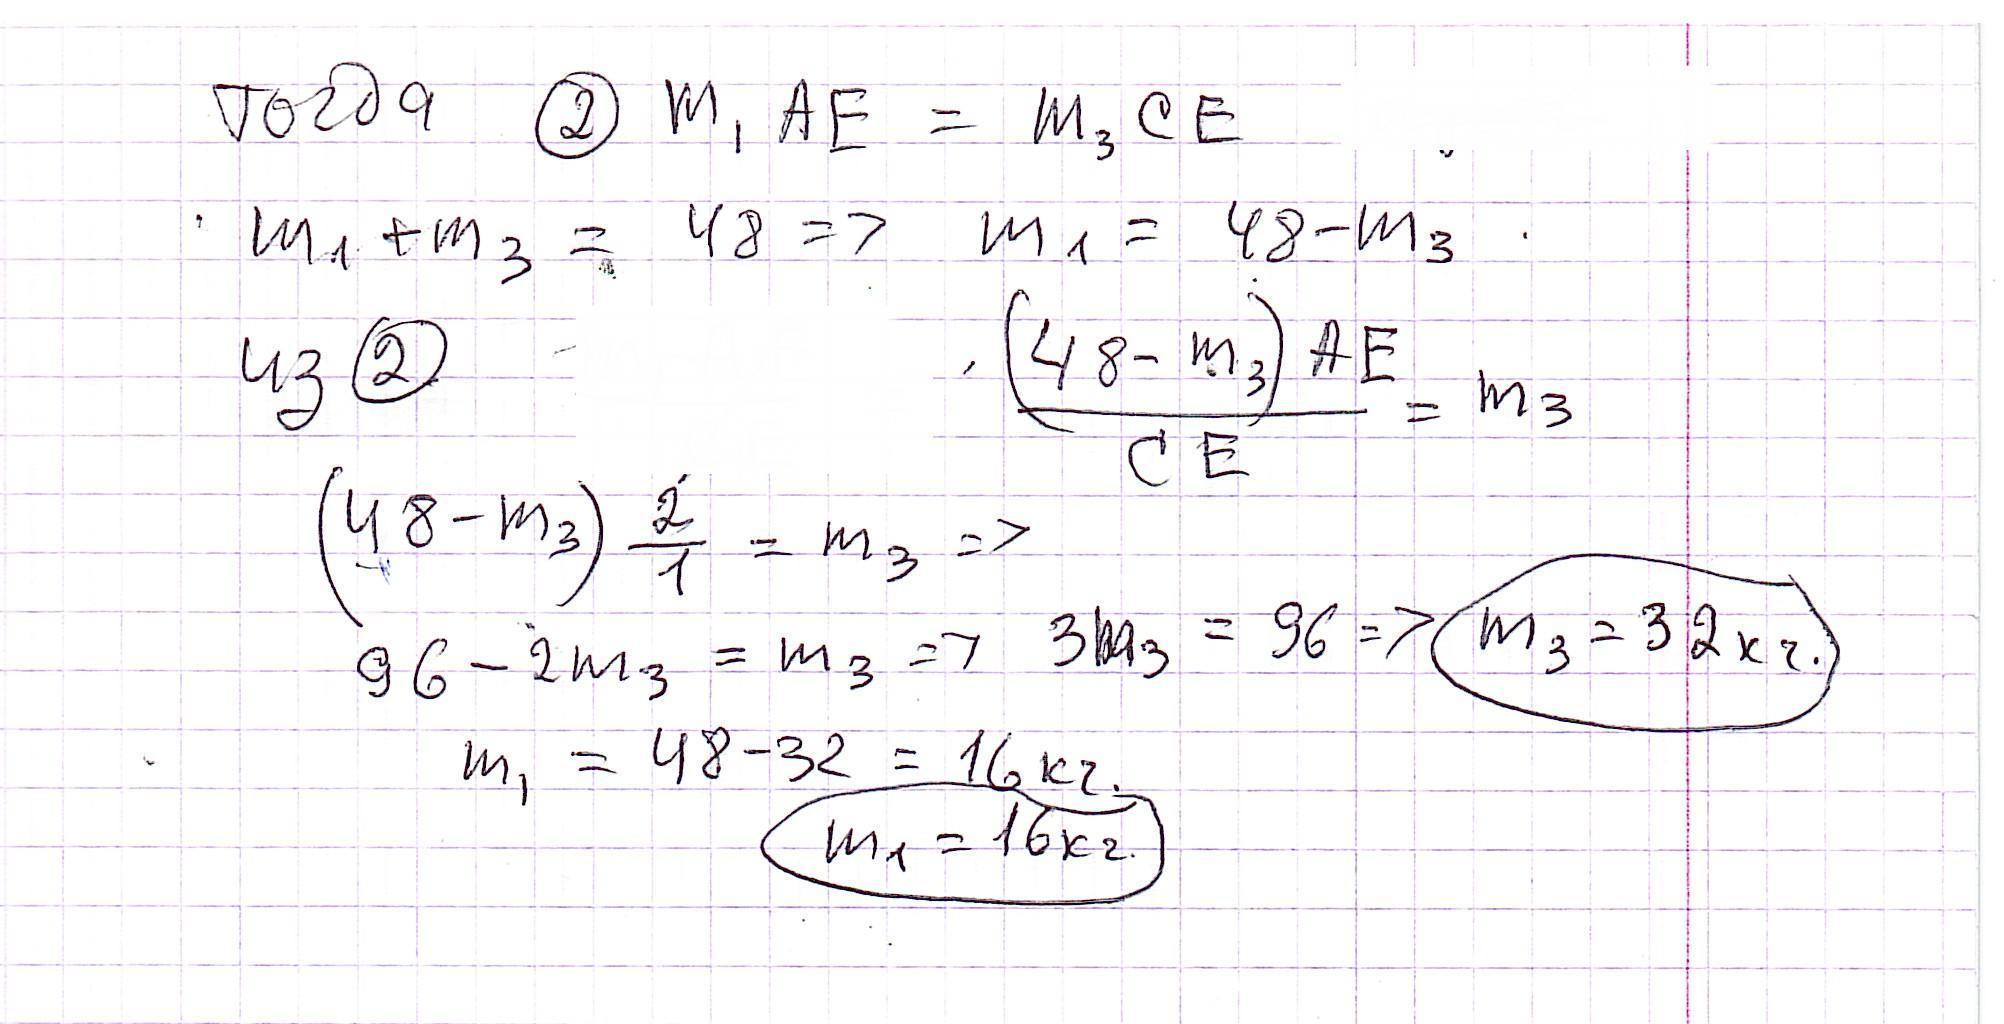 Тогда ② m₁ AE = m₃ CE
m₁ + m₃ = 48 => m₁ = 48 - m₃
из ② (48 - m₃) AE / CE = m₃
(48 - m₃) 2/1 = m₃ =>
96 - 2m₃ = m₃ => 3m₃ = 96 => m₃ = 32 кг.
m₁ = 48 - 32 = 16 кг.
m₁ = 16 кг.